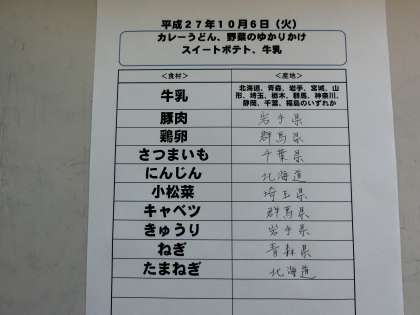 平成27年10月6日(火)
カレーうどん、野菜のゆかりかけ
スイートポテト、牛乳
<食材> <産地>
牛乳 北海道、青森、岩手、宮城、山
形、埼玉、栃木、群馬、神奈川、
静岡、千葉、福島のいずれか
豚肉 岩手県
鶏卵 群馬県
さつまいも 千葉県
にんじん 北海道
小松菜 埼玉県
キャベツ 群馬県
きゅうり 岩手県
ねぎ 青森県
たまねぎ 北海道